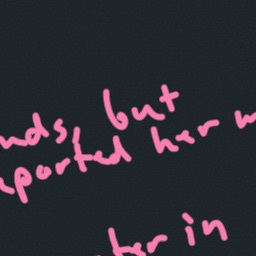 nds, but
ported her
ter in